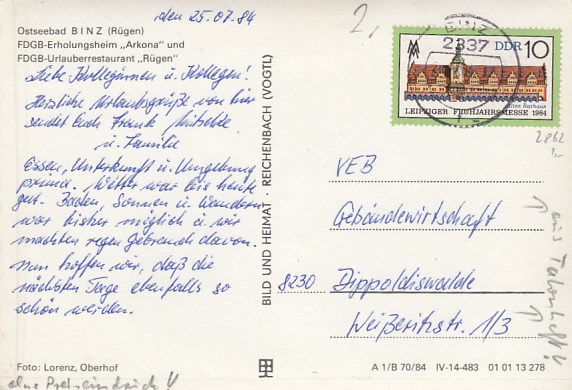 den 25.07.84
Ostseebad BINZ (Rügen)
FDGB-Erholungsheim „Arkona“ und
FDGB-Urlauberrestaurant „Rügen“
Liebe Kolleginnen u. Kollegen!
Herzliche Urlaubsgrüße von hier
sendet Euch Frank Nitschke
u. Familie
Essen, Unterkunft u. Umgebung
prima. Wetter war bis heute
gut. Baden, Sonnen u. Wandern
war bisher möglich u. wir
machten regen Gebrauch davon.
Nun hoffen wir, daß die
nächsten Tage ebenfalls so
schön werden.
Foto: Lorenz, Oberhof
ohne Preiseindruck !
BILD UND HEIMAT · REICHENBACH (VOGTL)
2,
BINZ
2337
DDR 10
Altes Rathaus
LEIPZIGER FRÜHJAHRSMESSE 1984
2862
1,-
VEB
Gebäudewirtschaft
8230 Dippoldiswalde
Weißeritzstr. 1/3
aus Talonheft!
A 1/B 70/84 IV-14-483 01 01 13 278